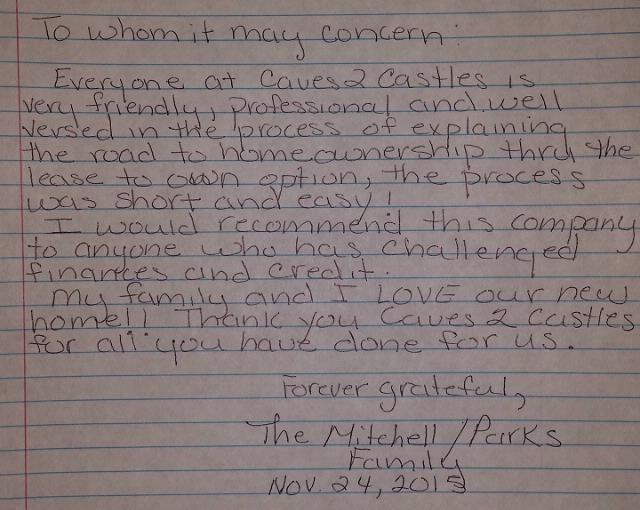 To whom it may concern:
Everyone at Caves 2 Castles is
very friendly, professional and well
versed in the process of explaining
the road to homeownership thru the
lease to own option, the process
was short and easy!
I would recommend this company
to anyone who has challenged
finances and credit.
My family and I LOVE our new
home!! Thank you Caves 2 Castles
for all you have done for us.
Forever grateful,
The Mitchell/Parks
Family
Nov. 24, 2015